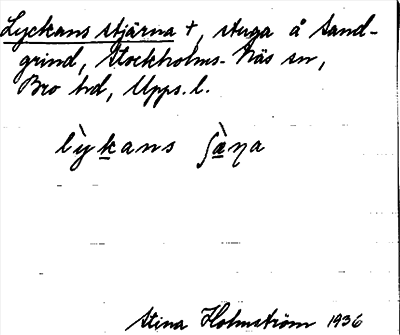 Lyckans stjärna +, stuga å Sand-
grind, Stockholms-Näs sn,
Bro hd, Upps. l.
lỳkans ʃàŋa
Stina Holmström 1936